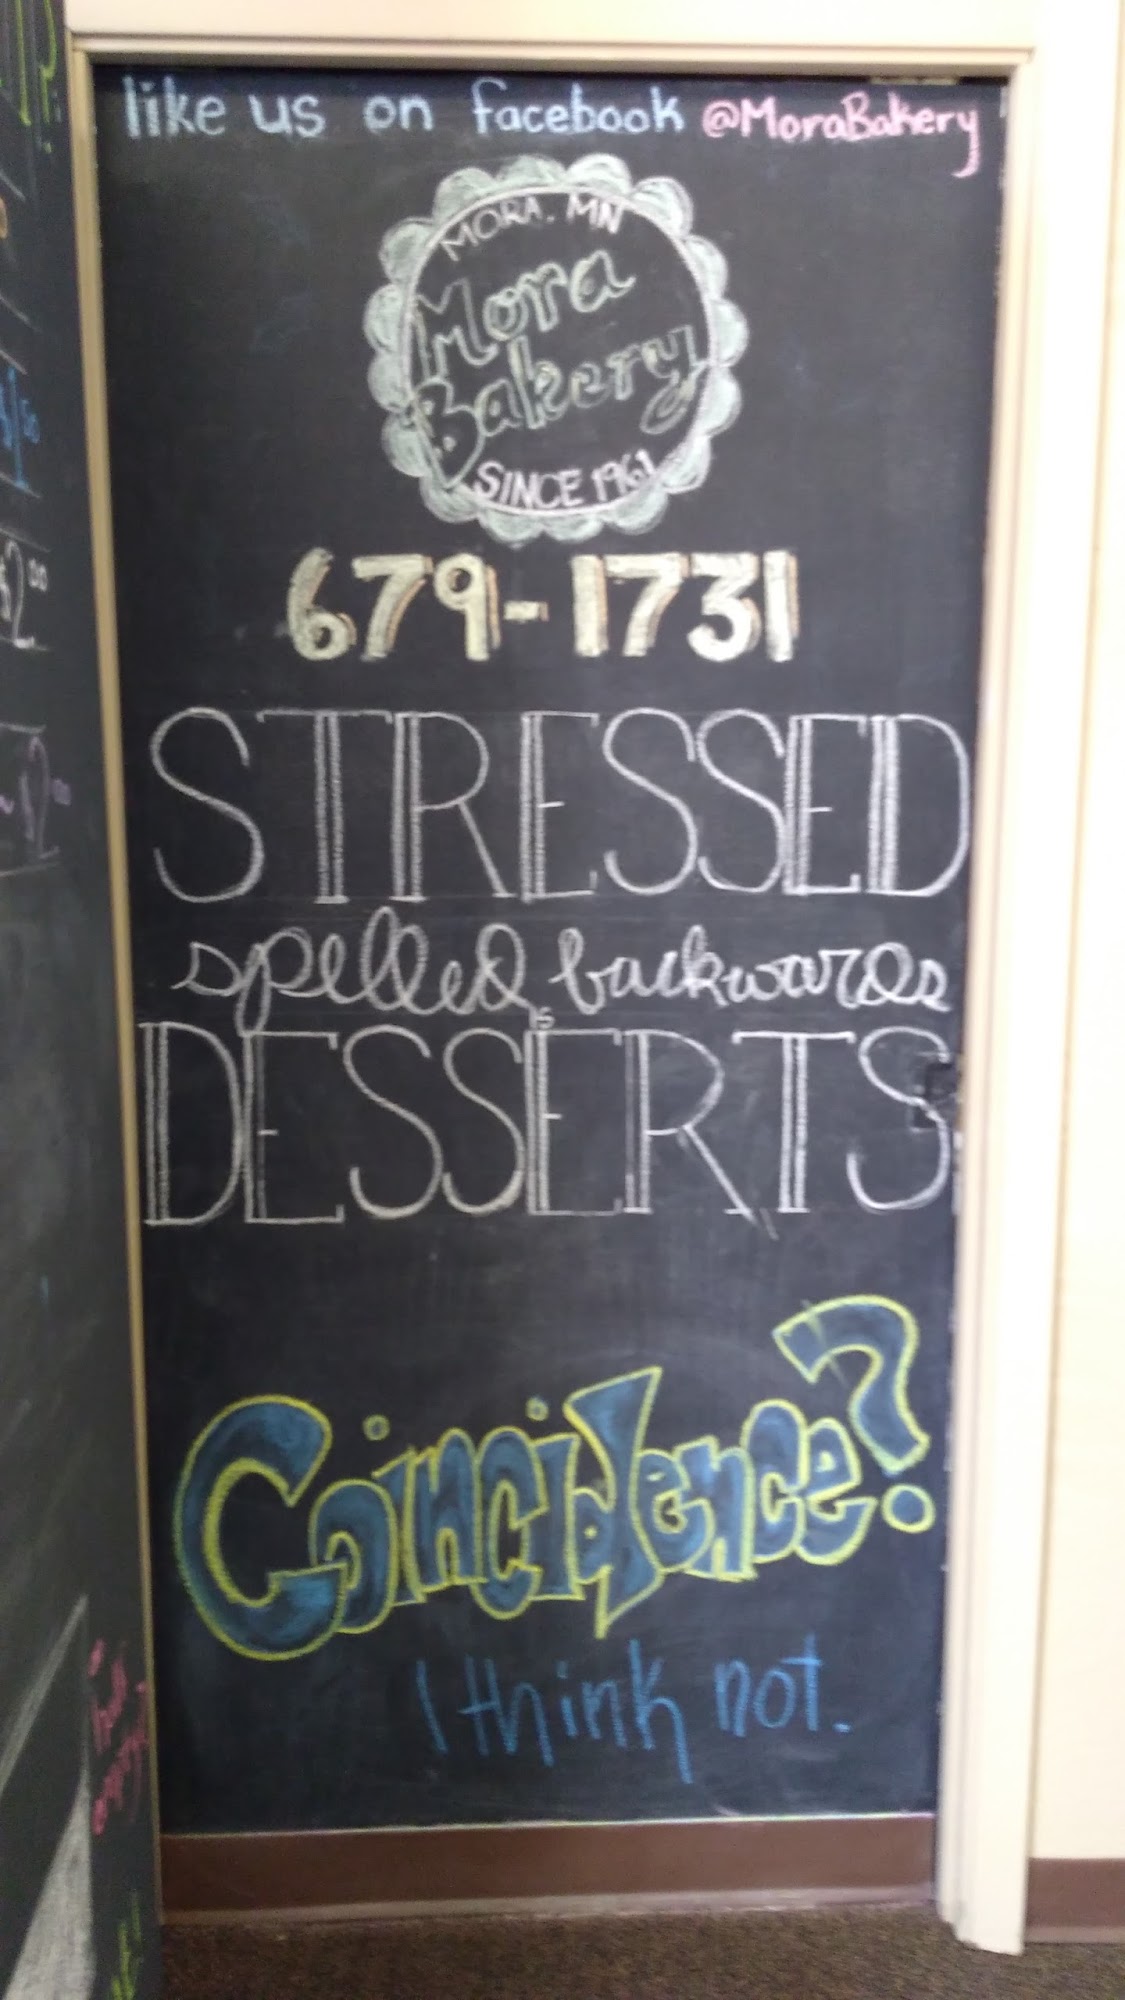 like us on facebook @MoraBakery
MORA, MN
Mora
Bakery
SINCE 1961
679-1731
STRESSED
spelled backwards
is
DESSERTS
Coincidence?
I think not.
$1.00
$2.00
$2.00